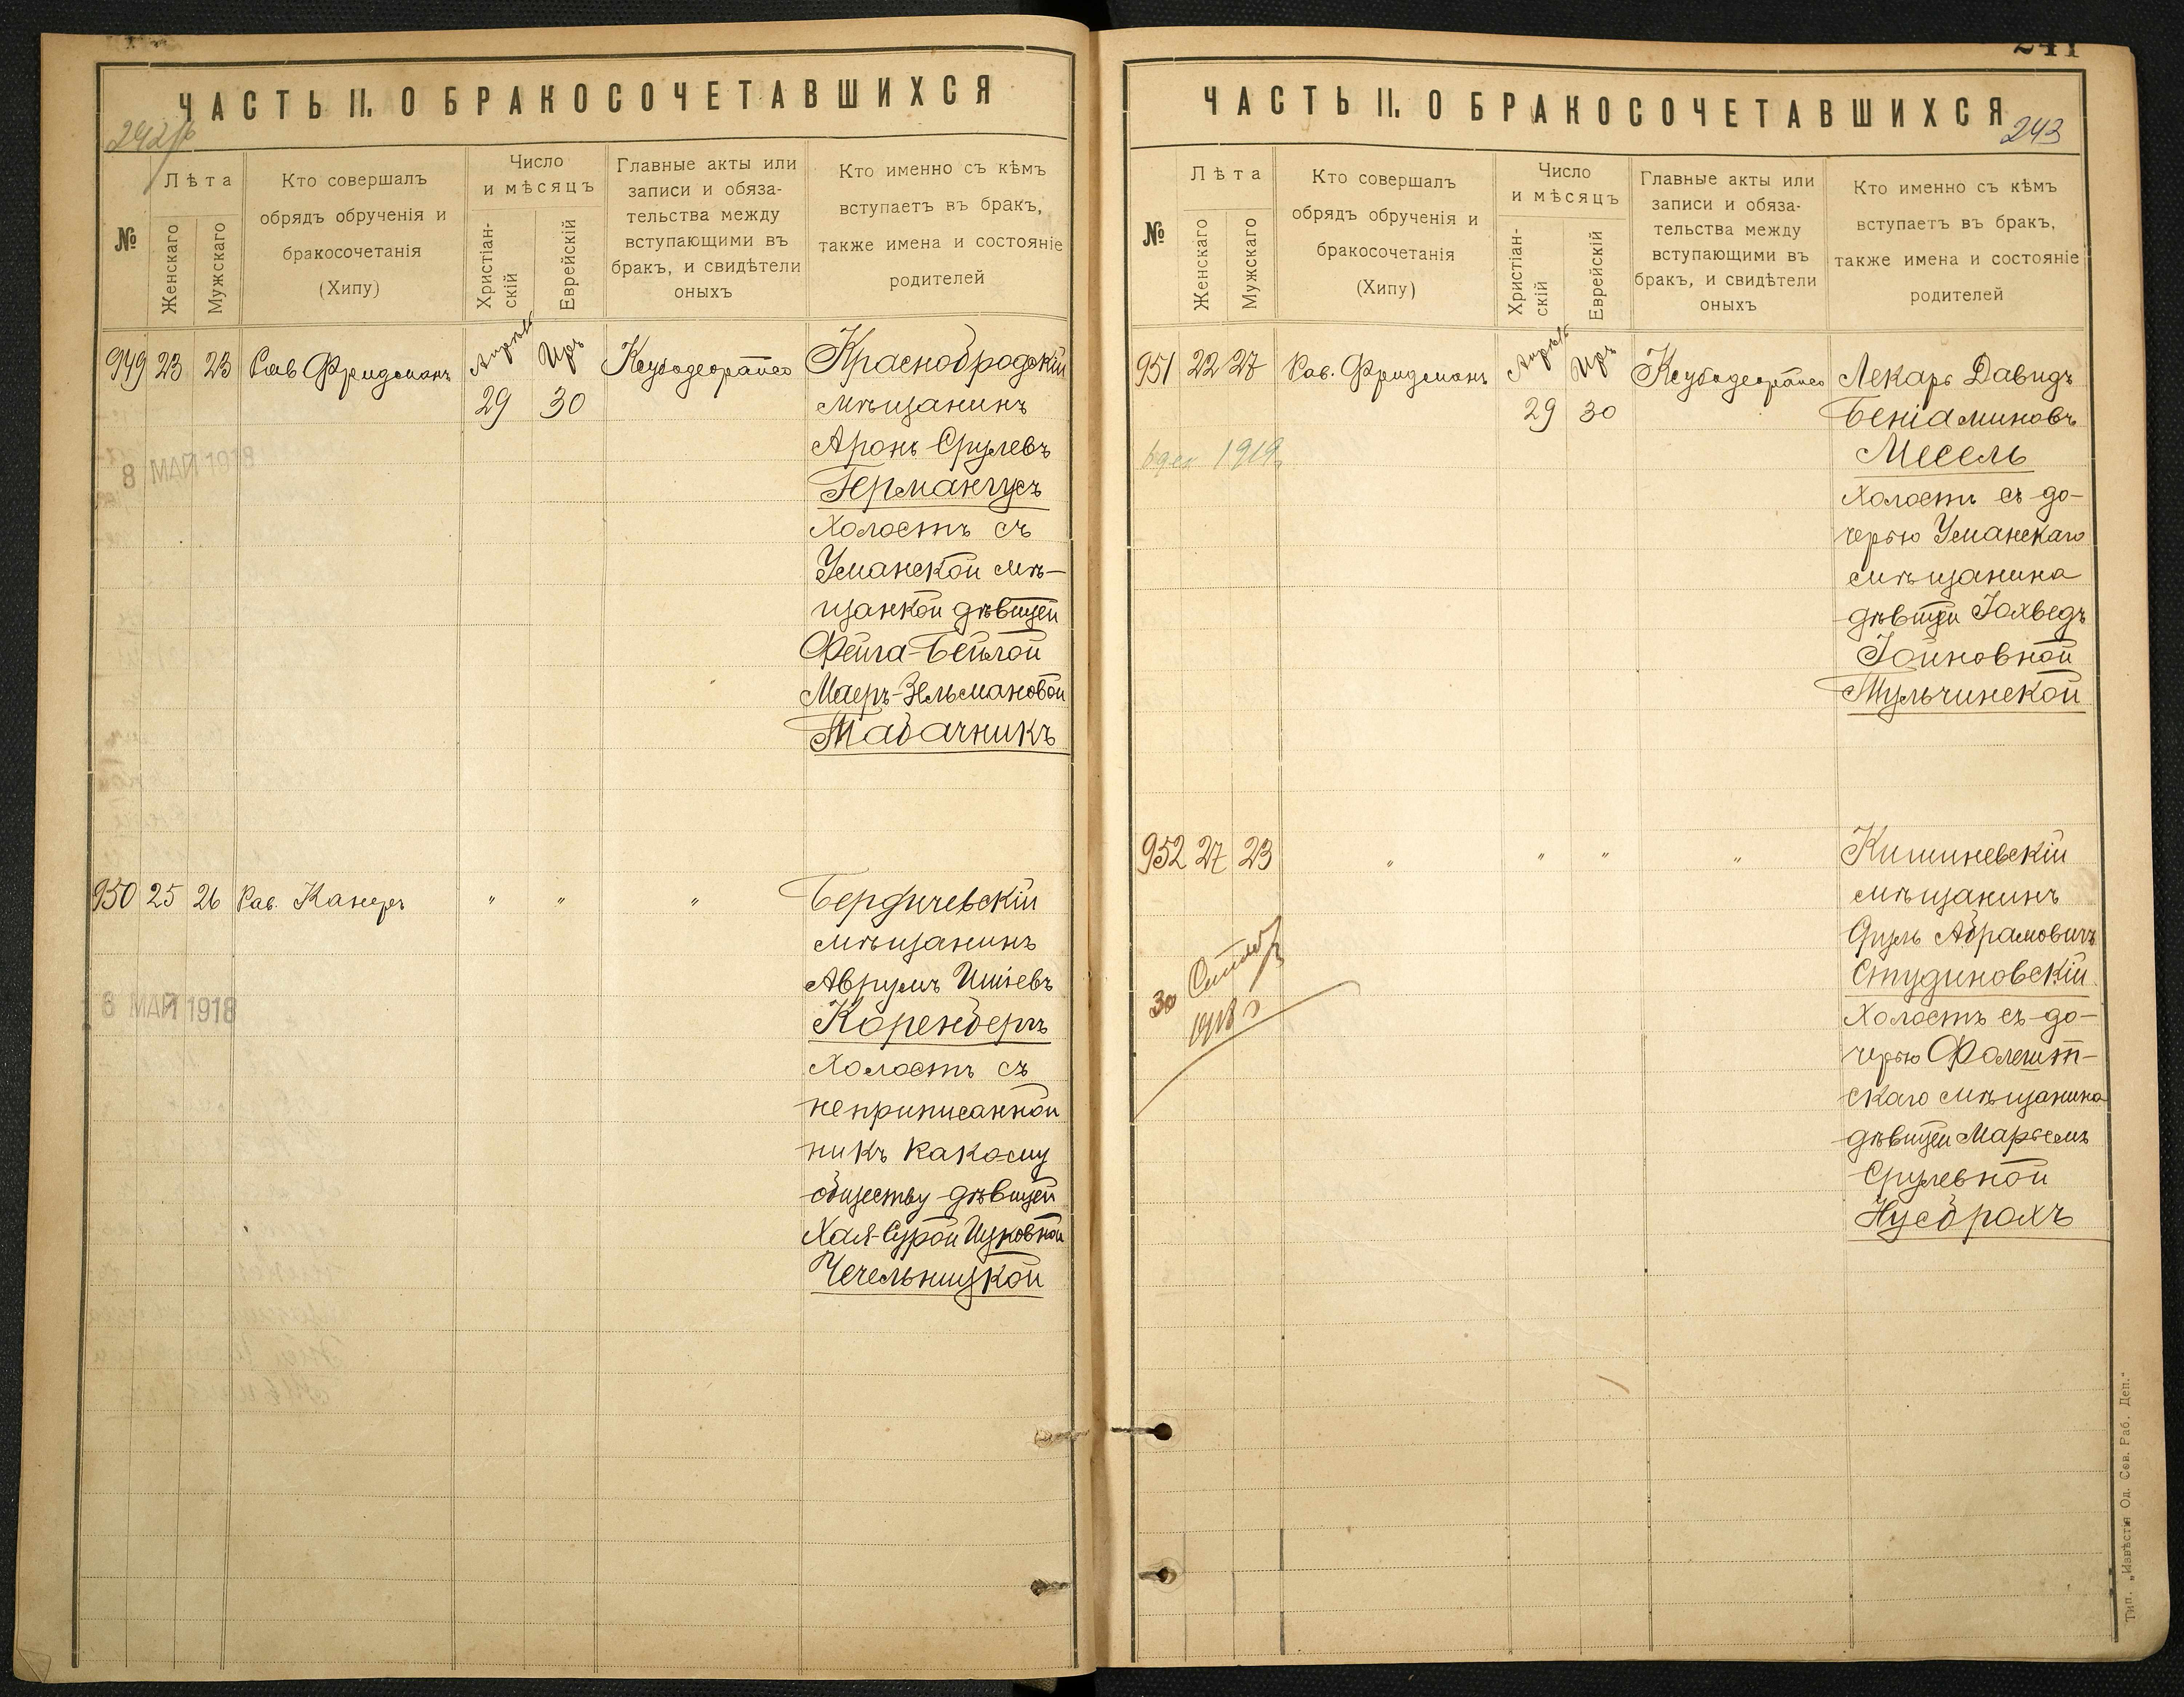 ЧАСТЬ II. О БРАКОСОЧЕТАВШИХСЯ
№
Лѣта
Женскаго
Мужскаго
Кто совершалъ
обрядъ обрученія и
бракосочетанія
(Хипу)
Число
и мѣсяцъ
Христіан-
скій
Еврейскій
Главные акты или
записи и обяза-
тельства между
вступающими въ
бракъ, и свидѣтели
оныхъ
Кто именно съ кѣмъ
вступаетъ въ бракъ,
также имена и состояніе
родителей
949 23 23 Рав Фридманъ
Апрѣль Иръ
29 30
Краснобродскій
мѣщанинъ
Аронъ Срулевъ
Германгусъ
холостъ съ
Уманской мѣ-
щанкой дѣвицей
Фейга-Бейлой
Маеръ-Зельмановой
Табачникъ
8 МАЙ 1918
950 25 26 Рав. Канеръ " " "
Бердичевскій
мѣщанинъ
Аврумъ Ишіевъ
Коренбергъ
холостъ съ
неприписанной
ни къ какому
обществу дѣвицей
Хая-Сурой Ицковной
Чечельницкой
8 МАЙ 1918
241
ЧАСТЬ II. О БРАКОСОЧЕТАВШИХСЯ
243
№
Лѣта
Женскаго
Мужскаго
Кто совершалъ
обрядъ обрученія и
бракосочетанія
(Хипу)
Число
и мѣсяцъ
Христіан-
скій
Еврейскій
Главные акты или
записи и обяза-
тельства между
вступающими въ
бракъ, и свидѣтели
оныхъ
Кто именно съ кѣмъ
вступаетъ въ бракъ,
также имена и состояніе
родителей
951 22 27 Рав. Фридманъ
Апрѣль Иръ
29 30
Лекарь Давидъ
Беніаминовъ
Месель
холостъ съ до-
черью Уманскаго
мѣщанина
дѣвицей Іохведъ
Іойновной
Тульчинской
1919
952 27 23 " " " "
Кишиневскій
мѣщанинъ
Сруль Абрамовичъ
Студиновскій
холостъ съ до-
черью Фалешт-
скаго мѣщанина
дѣвицей Марьемъ
Срулевной
Нусбрахъ
30
1918
Тип. „Извѣстія Од. Сов. Раб. Деп.“